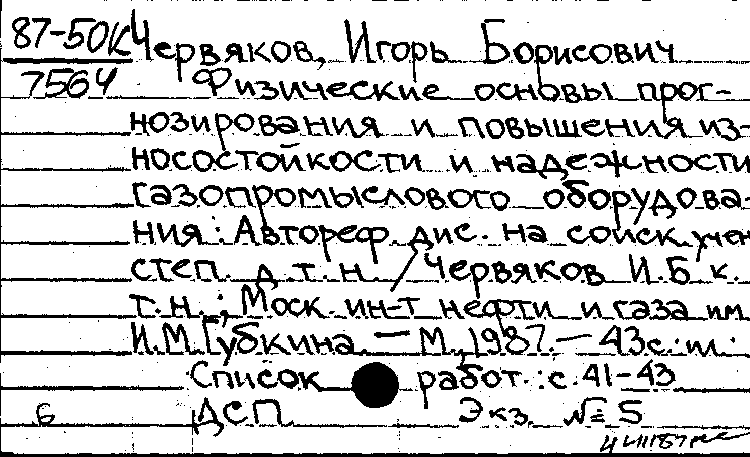 87-50К Червяков, Игорь Борисович
7564 Физические основы прог-
нозирования и повышения из-
носостойкости и надежности
газопромыслового оборудова-
ния: Автореф. дис. на соиск. учен.
степ. д.т.н. / Червяков И.Б. к.
т.н.; Моск. ин-т нефти и газа им.
И.М. Губкина. — М., 1987. — 43с.: ил.
Список работ.: с. 41-43
6 ДСП Экз. № 5